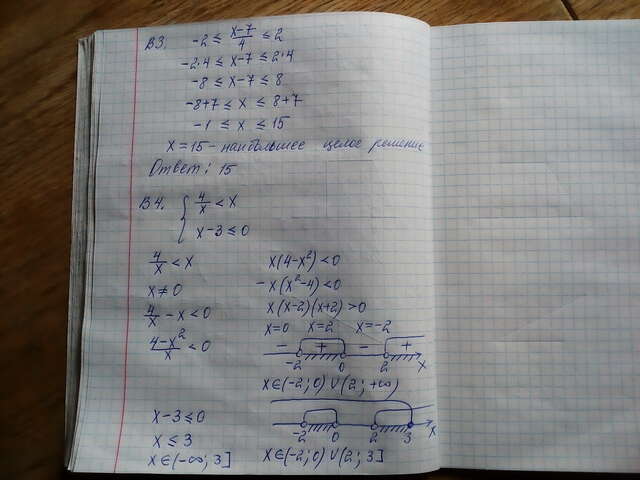 В3. -2 ≤ x-7/4 ≤ 2
-2·4 ≤ x-7 ≤ 2·4
-8 ≤ x-7 ≤ 8
-8+7 ≤ x ≤ 8+7
-1 ≤ x ≤ 15
x = 15 - наибольшее целое решение
Ответ: 15
В4. { 4/x < x
x-3 ≤ 0
4/x < x
x ≠ 0
4/x - x < 0
4-x²/x < 0
x(4-x²) < 0
-x(x²-4) < 0
x(x-2)(x+2) > 0
x=0 x=2 x=-2
- + - +
-2 0 2 x
x∈(-2; 0) ∪ (2; +∞)
x-3 ≤ 0
x ≤ 3
x∈(-∞; 3]
-2 0 2 3 x
x∈(-2; 0) ∪ (2; 3]